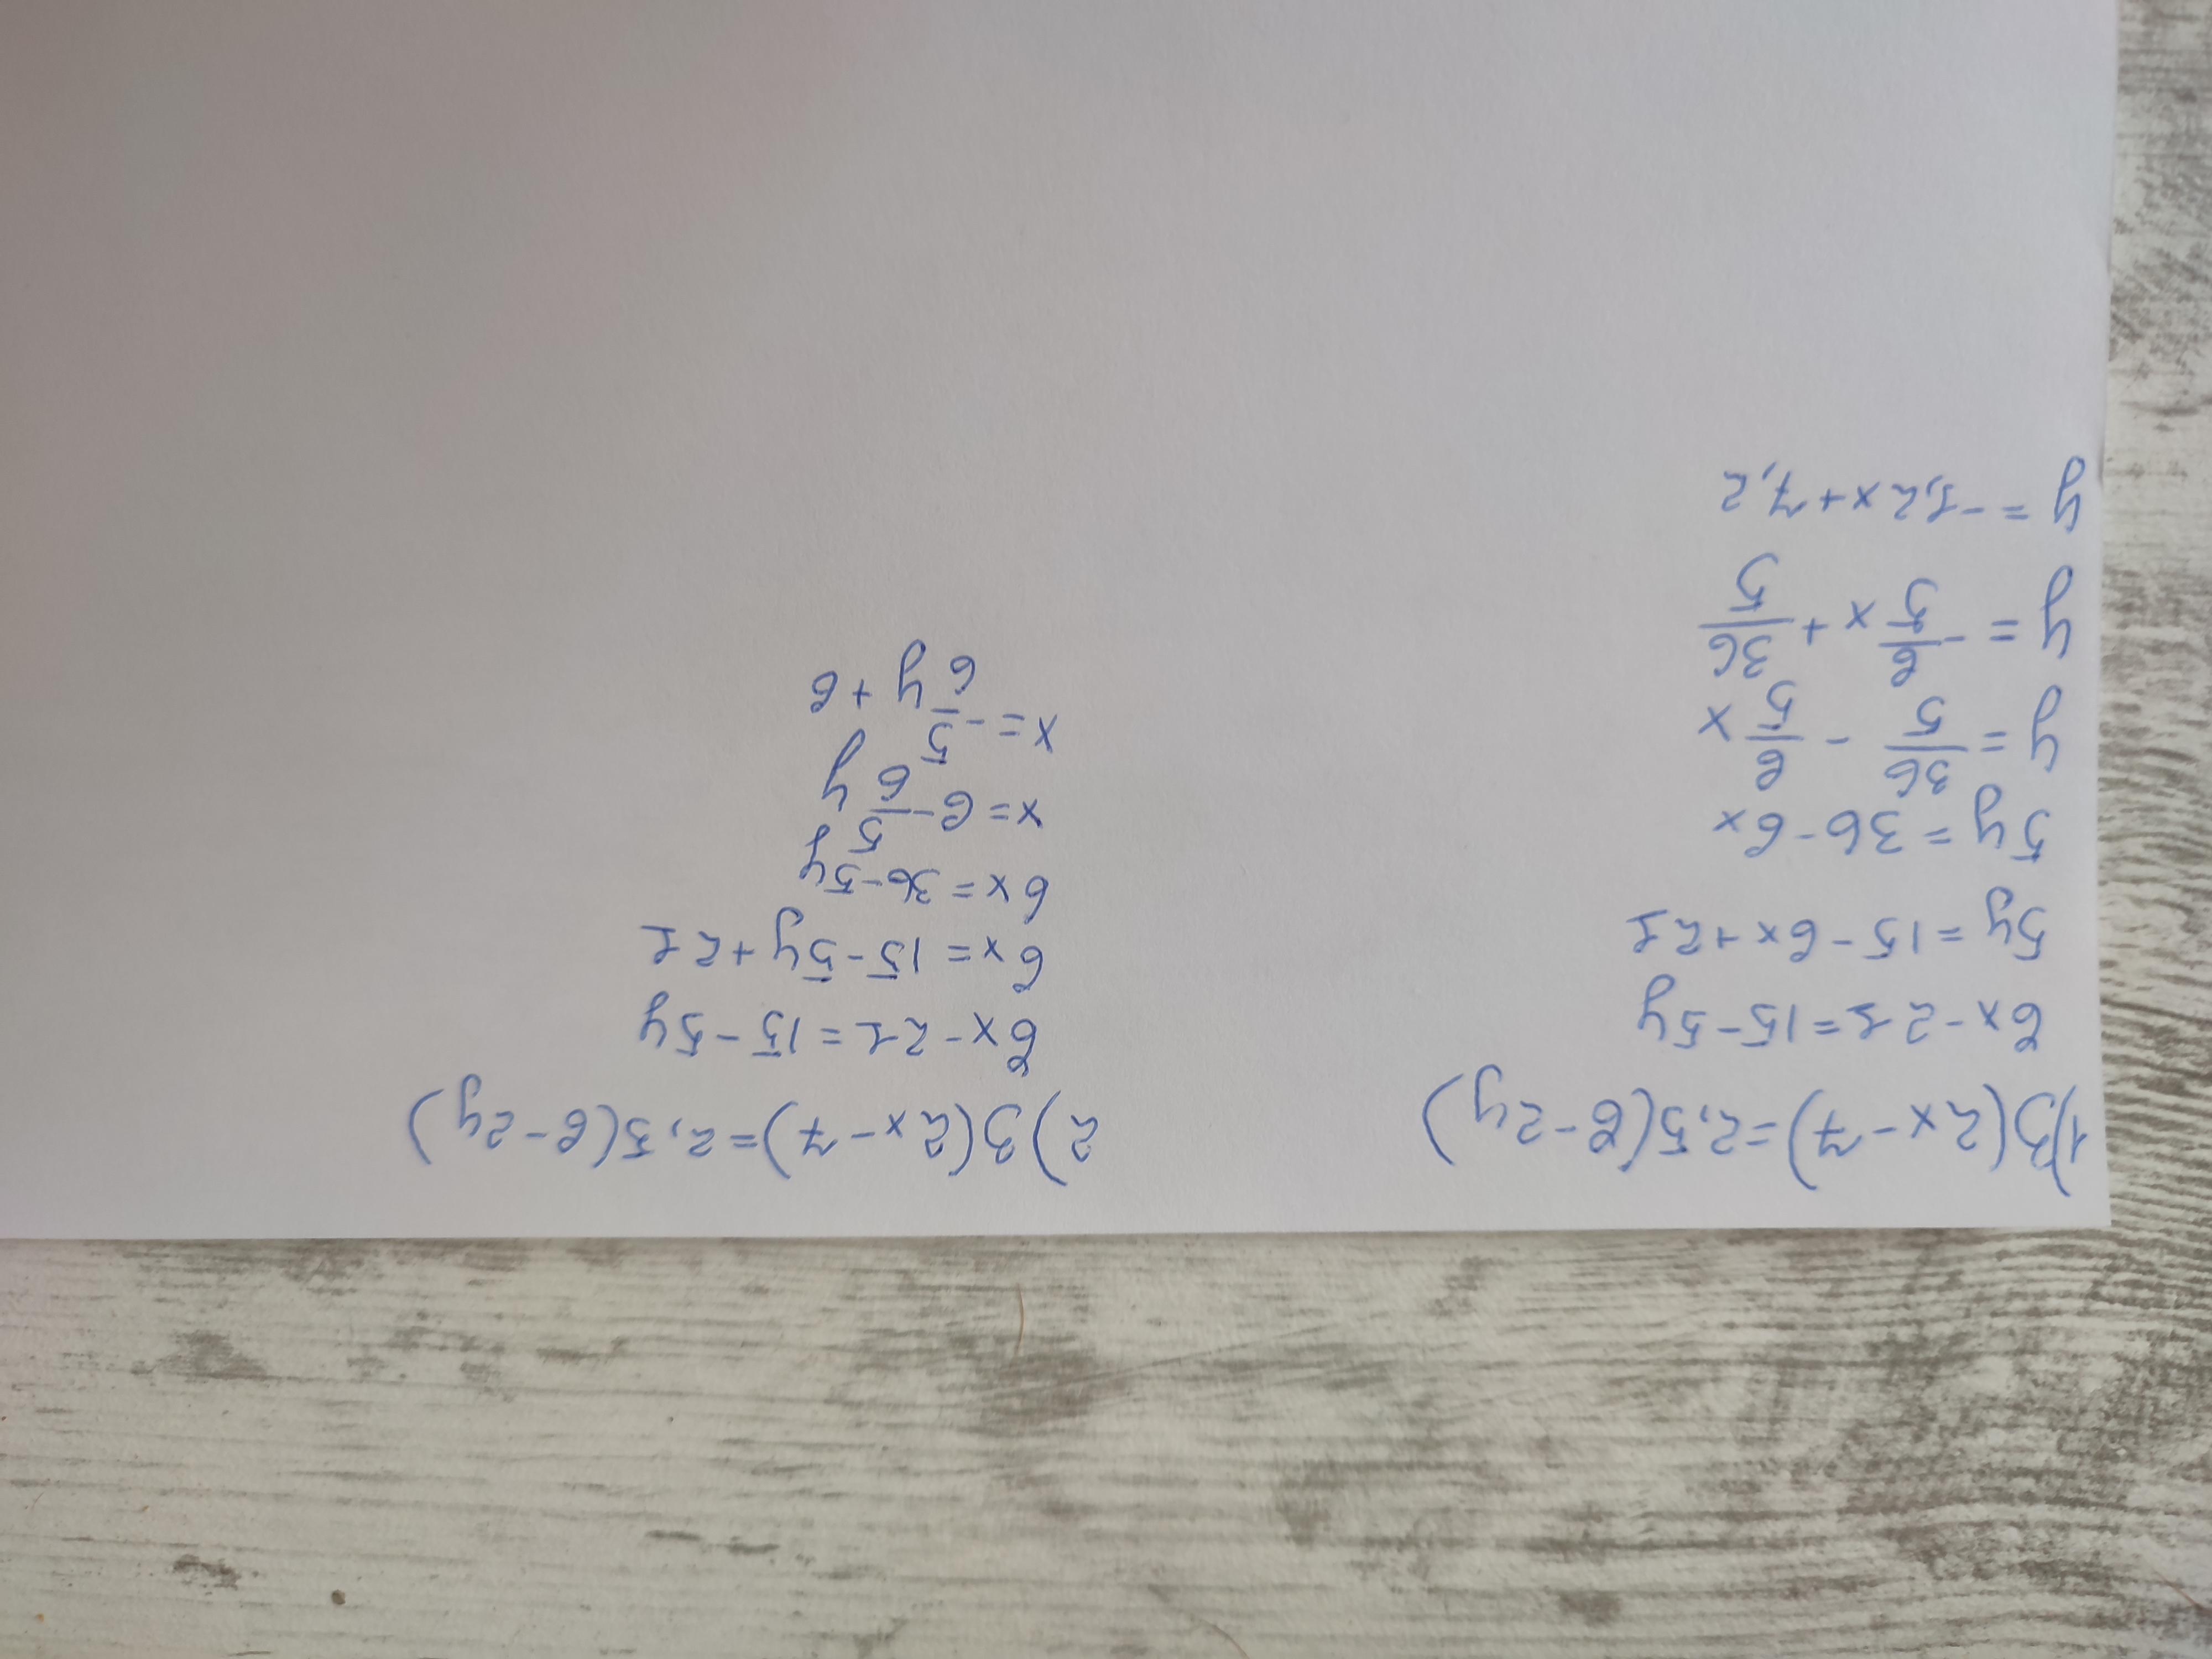 1) 3(2x-7)=2,5(6-2y)
6x-21=15-5y
5y=15-6x+21
5y=36-6x
y=36/5-6/5x
y=-6/5x+36/5
y=-1,2x+7,2
2) 3(2x-7)=2,5(6-2y)
6x-21=15-5y
6x=15-5y+21
6x=36-5y
x=6-5/6y
x=-5/6y+6